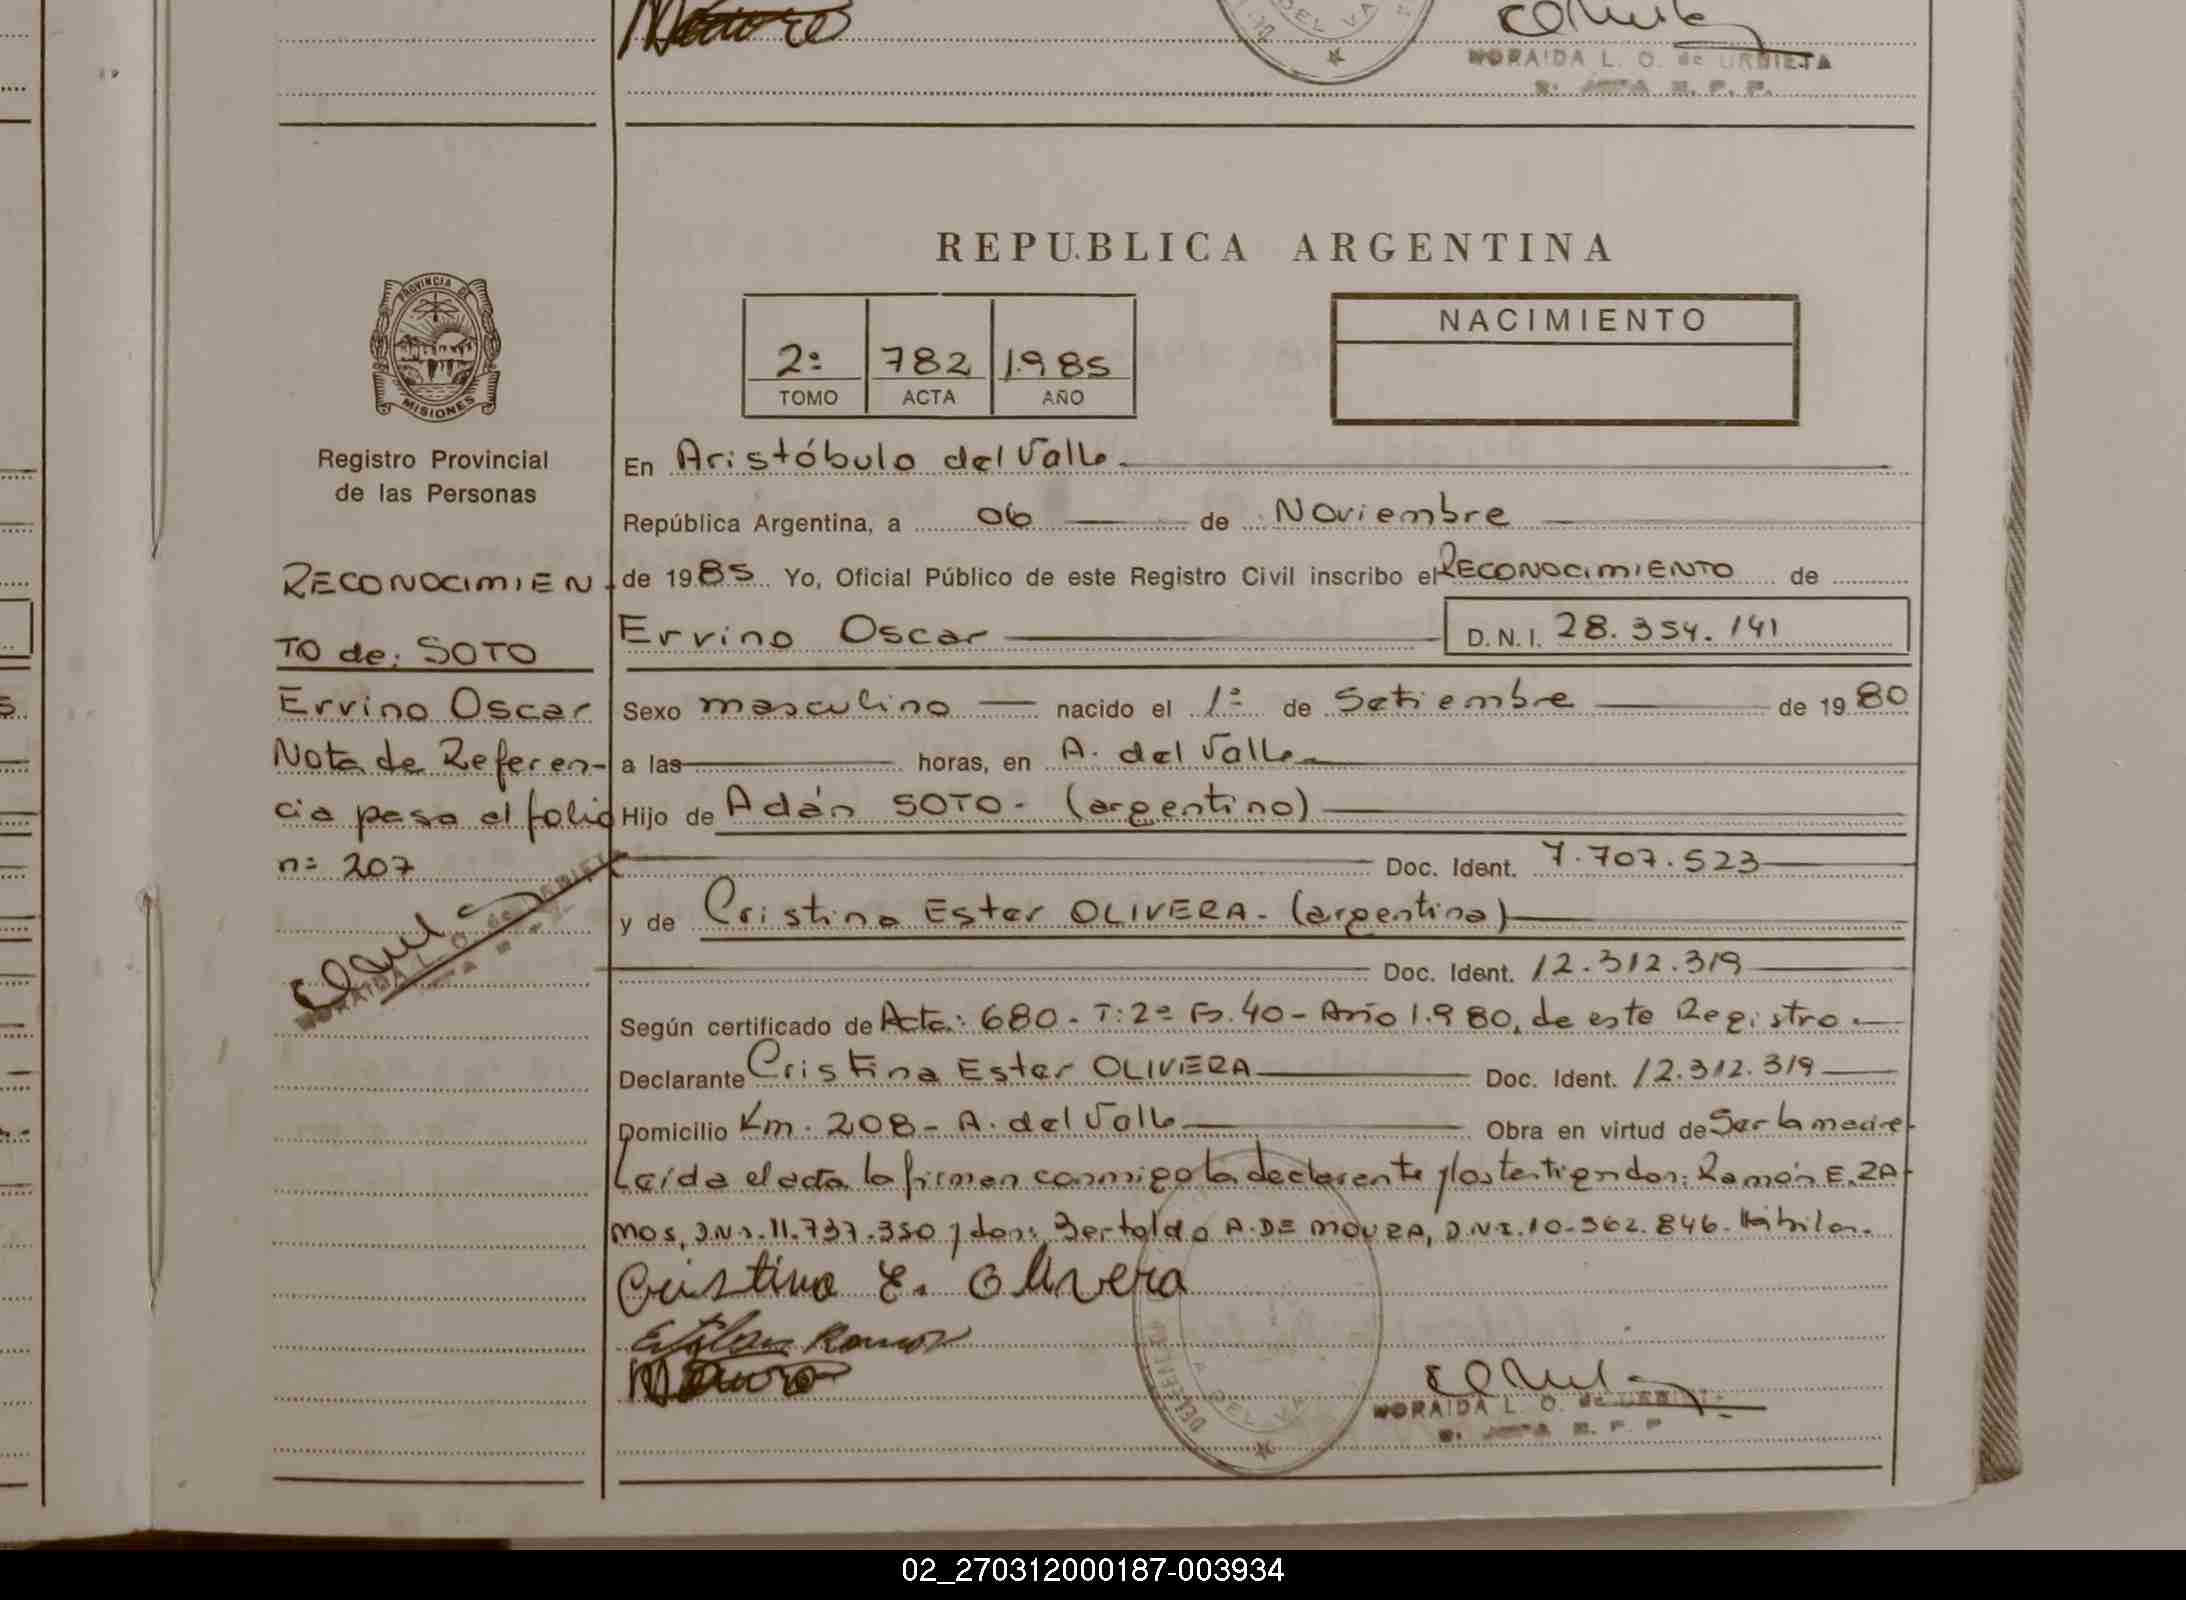 NORAIDA L. O. de URBIETA
DEL VA
REPUBLICA ARGENTINA
PROVINCIA DE
MISIONES
2º 782 1.985
TOMO ACTA AÑO
NACIMIENTO
Registro Provincial
de las Personas
RECONOCIMIEN
TO de: SOTO
Ervino Oscar
Nota de Referen-
cia pasa al folio
nº 207
En Aristóbulo del Valle
República Argentina, a 06 de Noviembre
de 1985 Yo, Oficial Público de este Registro Civil inscribo el RECONOCIMIENTO de
Ervino Oscar D.N.I. 28.354.141
Sexo masculino nacido el 1º de Setiembre de 1980
a las horas, en A. del Valle
Hijo de Adán SOTO - (argentino)
Doc. Ident. 7.707.523
y de Cristina Ester OLIVERA - (argentina)
Doc. Ident. 12.312.319
Según certificado de Acta: 680 - T: 2º Fº. 40 - Año 1.980, de este Registro.
Declarante Cristina Ester OLIVERA Doc. Ident. 12.312.319
Domicilio Km. 208 - A. del Valle Obra en virtud de Ser la madre
Leída el acta la firman conmigo la declarante y los testigos don: Ramón E. RA
MOS, D.N.I. 11.737.350 y don: Bertoldo A. DE MOURA, D.N.I. 10.362.846. Hábiles.
Cristina E. Olivera
Ramos
DEL VA
NORAIDA L. O. de URBIETA
02_270312000187-003934